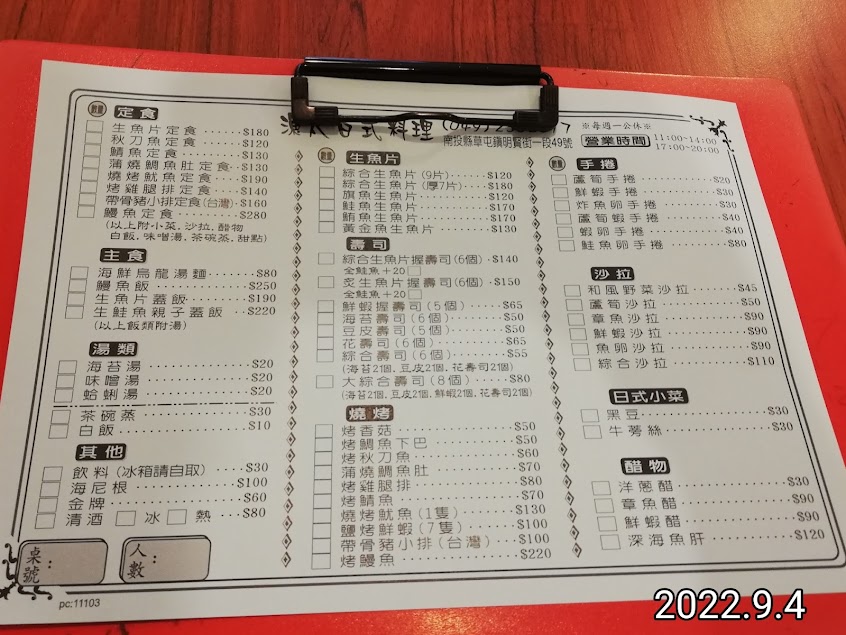 日式料理
南投縣草屯鎮明賢街一段49號
※每週一公休※
營業時間 11:00~14:00
17:00~20:00
數量 定食
生魚片定食 $180
秋刀魚定食 $120
鯖魚定食 $130
蒲燒鯛魚肚定食 $130
燒烤魷魚定食 $190
烤雞腿排定食 $140
帶骨豬小排定食(台灣) $160
鰻魚定食 $280
(以上附小菜.沙拉.醋物
白飯.味噌湯.茶碗蒸.甜點)
主食
海鮮烏龍湯麵 $80
鰻魚飯 $250
生魚片蓋飯 $190
生鮭魚親子蓋飯 $220
(以上飯類附湯)
湯類
海苔湯 $20
味噌湯 $20
蛤蜊湯 $20
茶碗蒸 $30
白飯 $10
其他
飲料(冰箱請自取) $30
海尼根 $100
金牌 $60
清酒 冰 熱 $80
桌號:
人數:
pc:11103
數量 生魚片
綜合生魚片(9片) $120
綜合生魚片(厚7片) $180
旗魚生魚片 $120
鮭魚生魚片 $170
鮪魚生魚片 $170
黃金魚生魚片 $130
壽司
綜合生魚片握壽司(6個) $140
全鮭魚+20
炙生魚片握壽司(6個) $150
全鮭魚+20
鮮蝦握壽司(5個) $65
海苔壽司(6個) $50
豆皮壽司(5個) $50
花壽司(6個) $65
綜合壽司(6個) $55
(海苔2個.豆皮2個.花壽司2個)
大綜合壽司(8個) $80
(海苔2個.豆皮2個.鮮蝦2個.花壽司2個)
燒烤
烤香菇 $50
烤鯛魚下巴 $50
烤秋刀魚 $60
蒲燒鯛魚肚 $70
烤雞腿排 $80
烤鯖魚 $70
燒烤魷魚(1隻) $130
鹽烤鮮蝦(7隻) $100
帶骨豬小排(台灣) $100
烤鰻魚 $220
數量 手捲
蘆筍手捲 $20
鮮蝦手捲 $30
炸魚卵手捲 $30
蘆筍蝦手捲 $40
蝦卵手捲 $40
鮭魚卵手捲 $80
沙拉
和風野菜沙拉 $45
蘆筍沙拉 $50
章魚沙拉 $90
鮮蝦沙拉 $90
魚卵沙拉 $90
綜合沙拉 $110
日式小菜
黑豆 $30
牛蒡絲 $30
醋物
洋蔥醋 $30
章魚醋 $90
鮮蝦醋 $90
深海魚肝 $120
2022.9.4